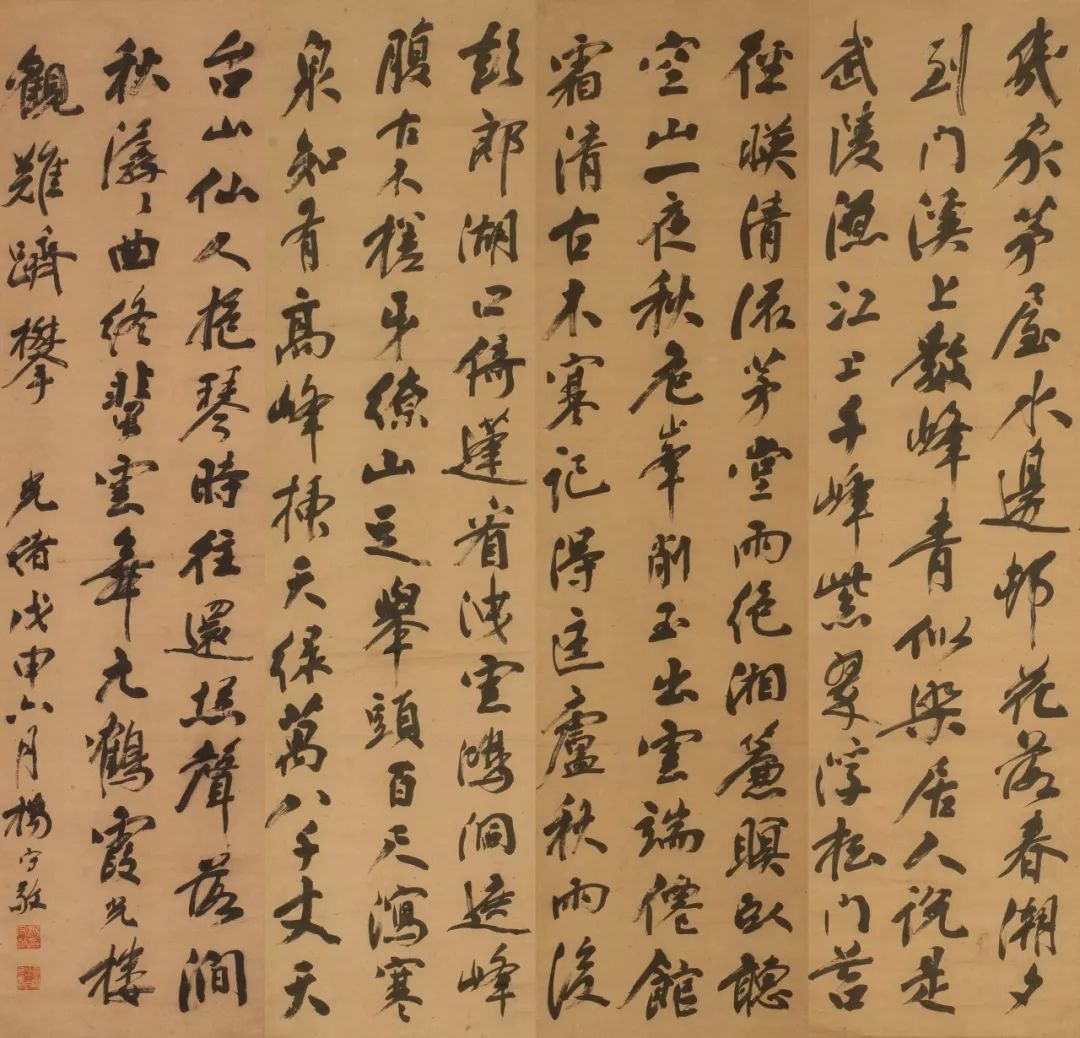 幾家茅屋水邊邨花落春潮夕
到門溪上數峰青似染居人説是
武陵源江上千峰紫翠浮松門苔
徑暎清流茅堂雨色湘簾暝臥聽
空山一夜秋危峯削玉出雲端僊館
霜清古木寒記得匡廬秋雨後
彭郎湖口倚蓬看洩雲鴻洞遶峰
腹古木槎牙繚山足舉頭百尺瀉寒
泉知有高峰插天綠萬八千丈天
台山仙人抱琴時往還聲落澗
秋潺〻曲終蜚雲舞元鶴霞光樓
觀難躋攀 光緒戊申六月楊守敬